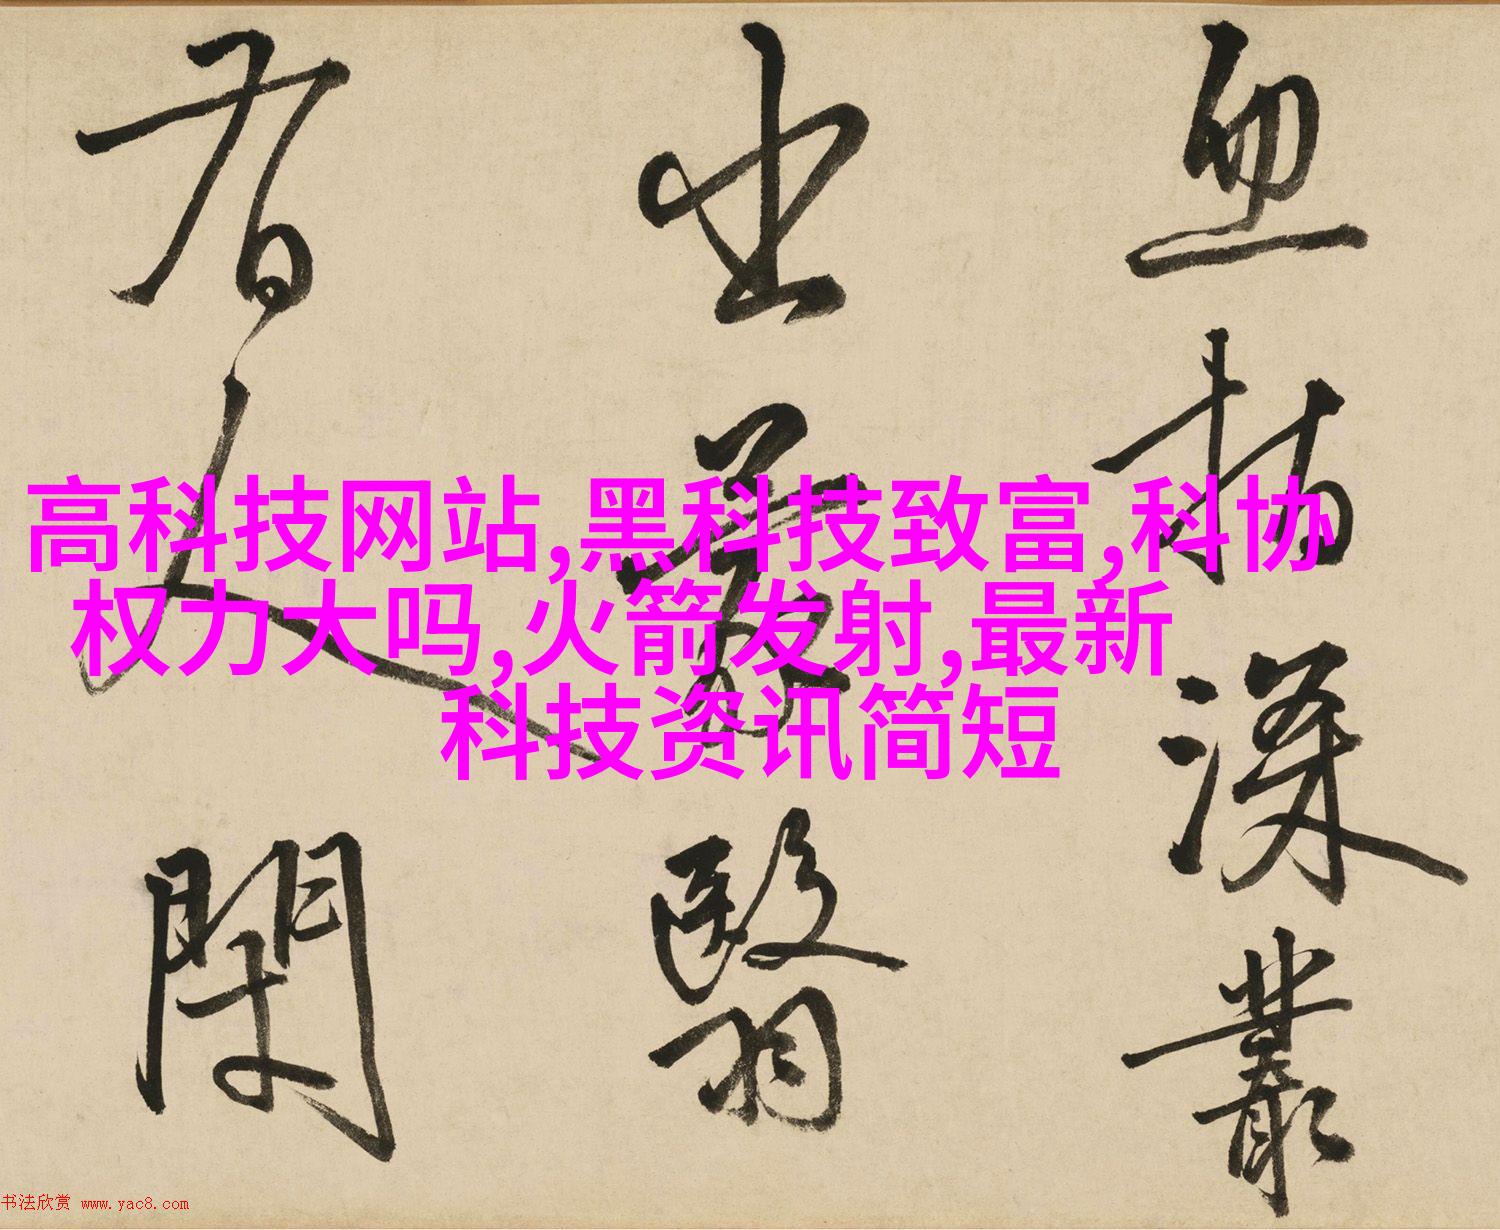 高科技网站,黑科技致富,科协
权力大吗,火箭发射,最新
科技资讯简短
血指深叢
出蒙翳
有人閑
书法欣赏 www.yac8.com